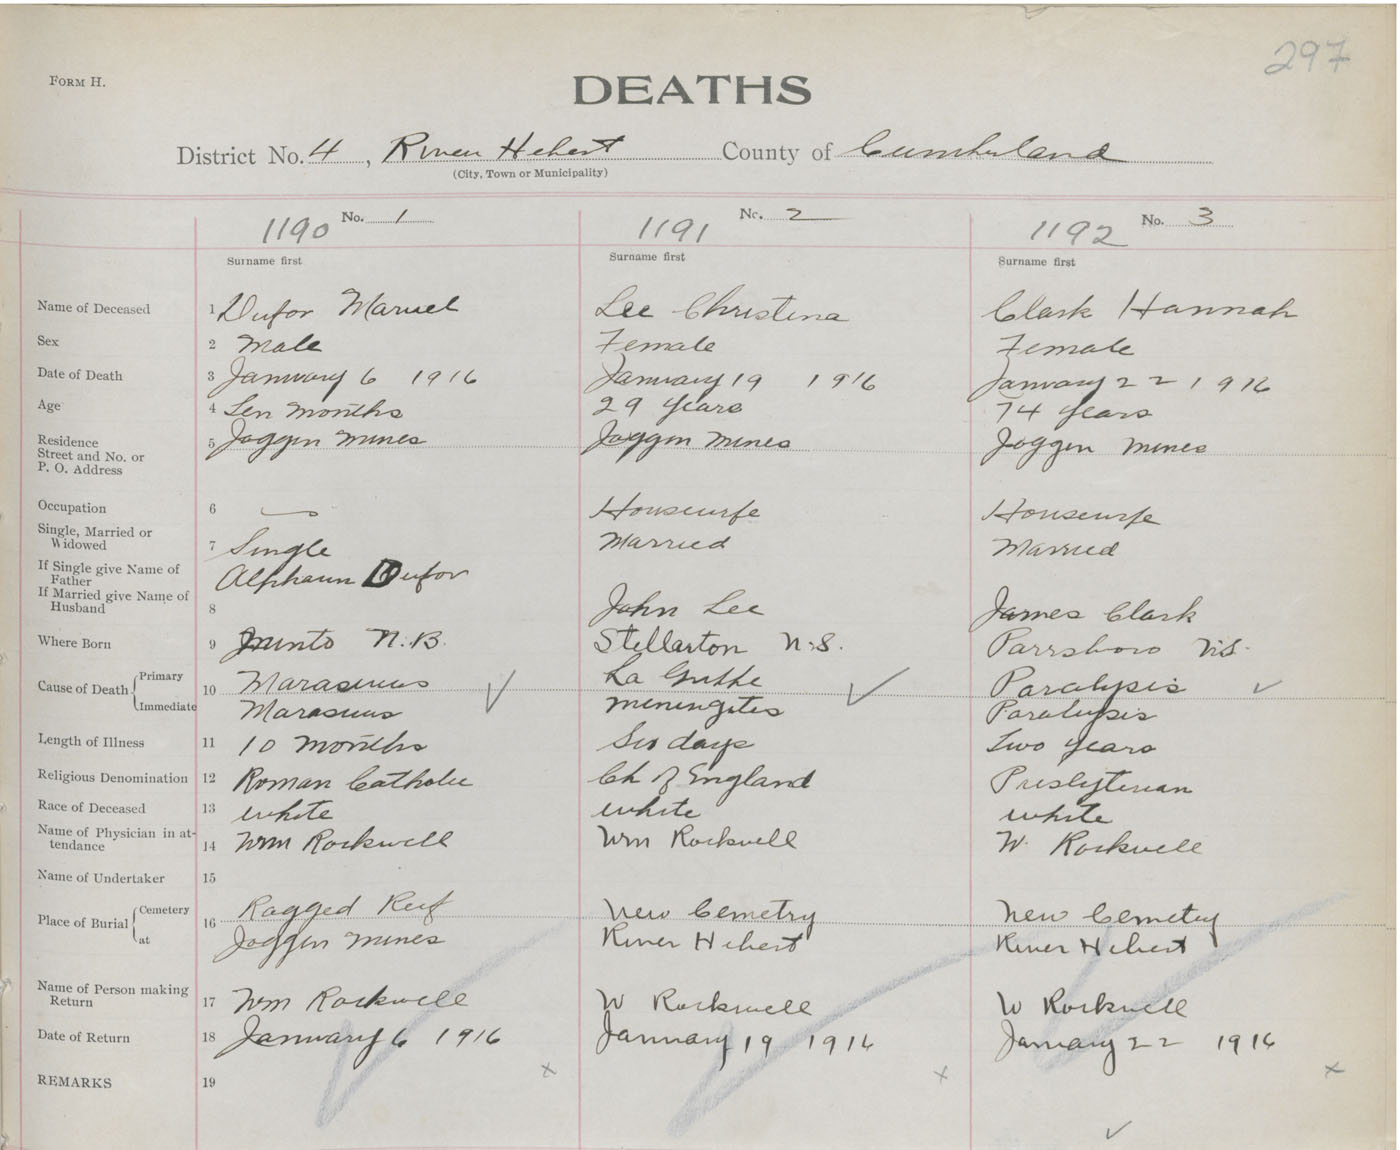 297
FORM H.
DEATHS
District No. 4, River Hebert County of Cumberland
(City, Town or Municipality)
No. 1 No. 2 No. 3
1190 1191 1192
Surname first Surname first Surname first
Name of Deceased 1 Dufor Manuel Lee Christena Clark Hannah
Sex 2 Male Female Female
Date of Death 3 January 6 1916 January 19 1916 January 22 1916
Age 4 Ten months 29 years 74 years
Residence 5 Joggin Mines Joggin Mines Joggin Mines
Street and No. or
P. O. Address
Occupation 6 Housewife Housewife
Single, Married or
Widowed 7 Single Married Married
If Single give Name of
Father Dufor
If Married give Name of
Husband 8 John Lee James Clark
Where Born 9 Minto N.B. Stellarton N.S. Parrsboro N.S.
Cause of Death Primary 10 Marasmus La Grippe Paralysis
Immediate Marasmus meningites Paralysis
Length of Illness 11 10 months Six days Two years
Religious Denomination 12 Roman Catholic Ch of England Presbyterian
Race of Deceased 13 white white white
Name of Physician in at-
tendance 14 Wm Rockwell Wm Rockwell W. Rockwell
Name of Undertaker 15
Place of Burial Cemetery 16 Ragged Reef New Cemetry New Cemetry
at Joggin Mines River Hebert River Hebert
Name of Person making
Return 17 Wm Rockwell W Rockwell W Rockwell
Date of Return 18 January 6 1916 January 19 1916 January 22 1916
REMARKS 19